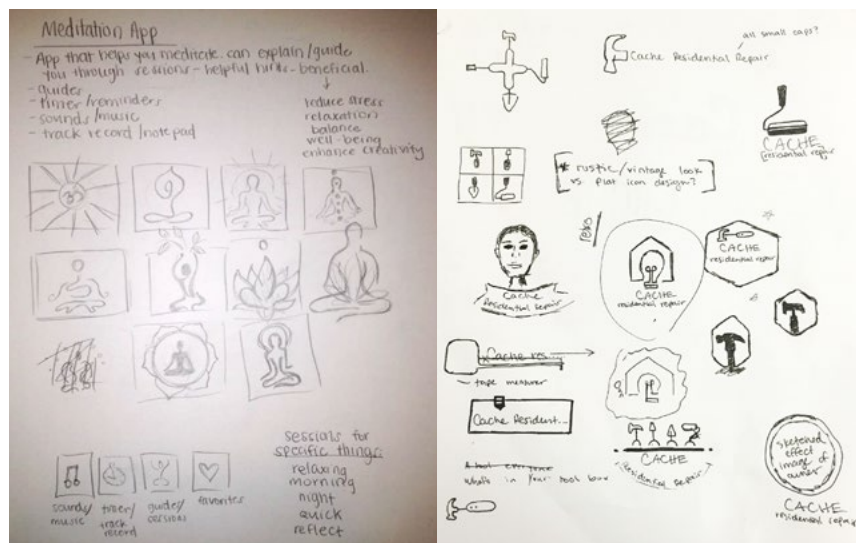 Meditation App
- App that helps you meditate. can explain/guide
you through sessions - helpful hints - beneficial.
- guides
- timer/reminders
- sounds/music
- track record/notepad
reduce stress
relaxation
balance
well-being
enhance creativity
sounds/
music
timer/
track
record
guides/
sessions
favorites
sessions for
specific things:
relaxing
morning
night
quick
reflect
all small caps?
Cache Residential Repair
CACHE
residential repair
* rustic/vintage look
vs. flat icon design?
Cache
Residential Repair
CACHE
residential repair
CACHE
residential repair
Cache res...
- tape measurer
Cache Resident...
CACHE
Residential Repair
what's in your tool box
sketched
effect
image of
owner
CACHE
residential repair